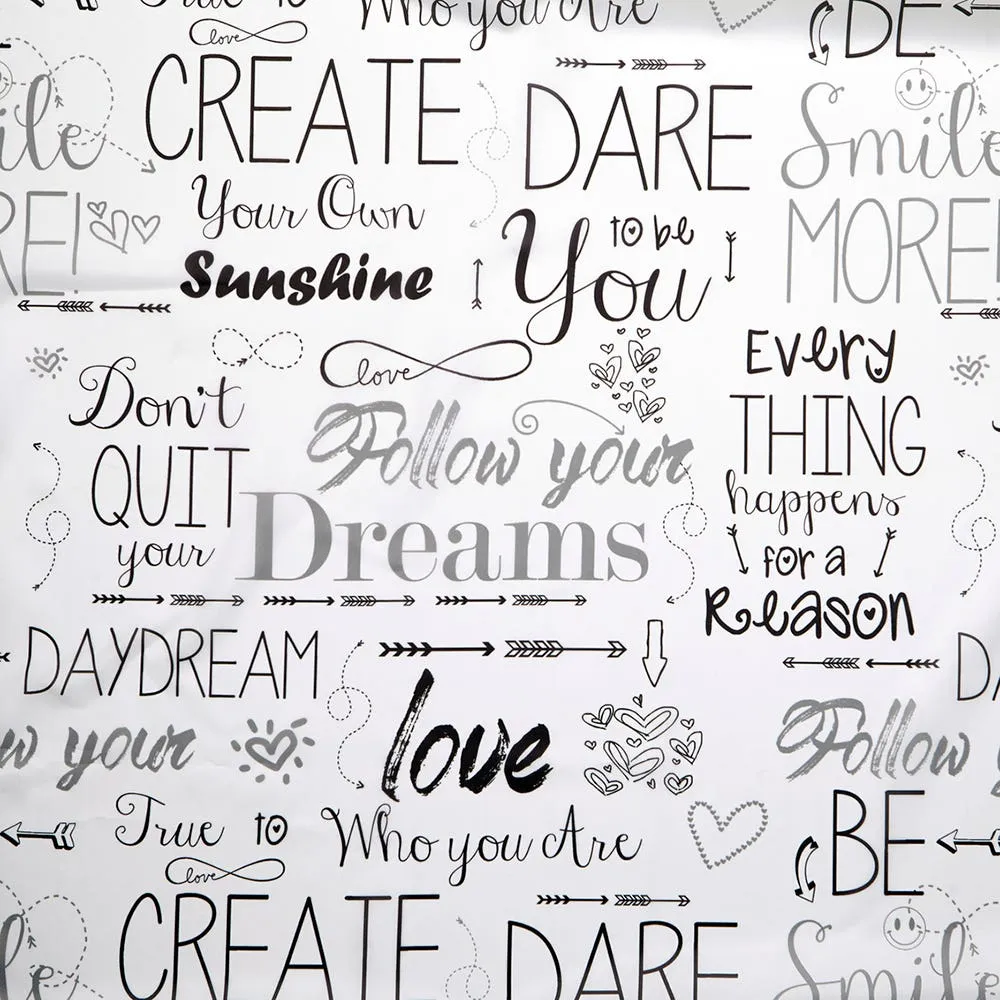 True to
Who you Are
BE
love
CREATE
Your Own
Sunshine
DARE
to be
You
Smile
MORE!
ile
RE!
Don't
QUIT
your
DAYDREAM
love
Follow your
Dreams
Every
THING
happens
for a
Reason
love
w your
Follow
DA
True to
Who you Are
BE
love
CREATE
DARE
Smile
le